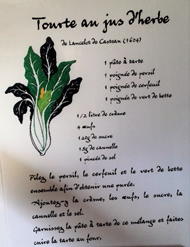 Tourte au jus d'herbe
de Lancelot de Casteau (1604)
1 pâte à tarte
1 poignée de persil
1 poignée de cerfeuil
1 poignée de vert de bette
1/2 litre de crème
4 œufs
120g de sucre
15g de cannelle
1 pincée de sel
Pilez le persil, le cerfeuil et le vert de bette
ensemble afin d'obtenir une purée.
Ajoutez-y la crème, les œufs, le sucre, la
cannelle et le sel.
Garnissez la pâte à tarte de ce mélange et faites
cuire la tarte au four.